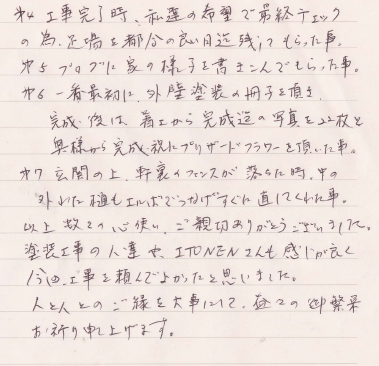 オ4 工事完了時、私達の希望で最終チェック
の為、足場を都合の良い日迄残してもらった事。
オ5 ブログに家の様子を書きこんでもらった事。
オ6 一番最初に、外壁塗装の冊子を頂き、
完成後は、着工から完成迄の写真を22枚と
奥様から完成祝にプリザードフラワーを頂いた事。
オ7 玄関の上、軒裏のフェンスが落ちた時、中の
外れた樋もエルボでつなげすぐに直してくれた事。
以上数々の心使い、ご親切ありがとうございました。
塗装工事の人達や、ITONENさんも感じが良く
今回、工事を頼んでよかったと思いました。
人と人とのご縁を大事にして、益々の御繁栄
お祈り申し上げます。